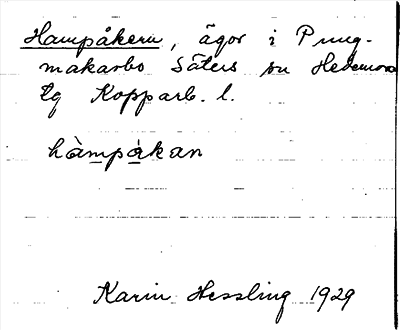 Hampåkern, ägor i Pung-
makarbo Säters sn Hedemora
tg Kopparb. l.
hàmpåkan
Karin Hessling 1929